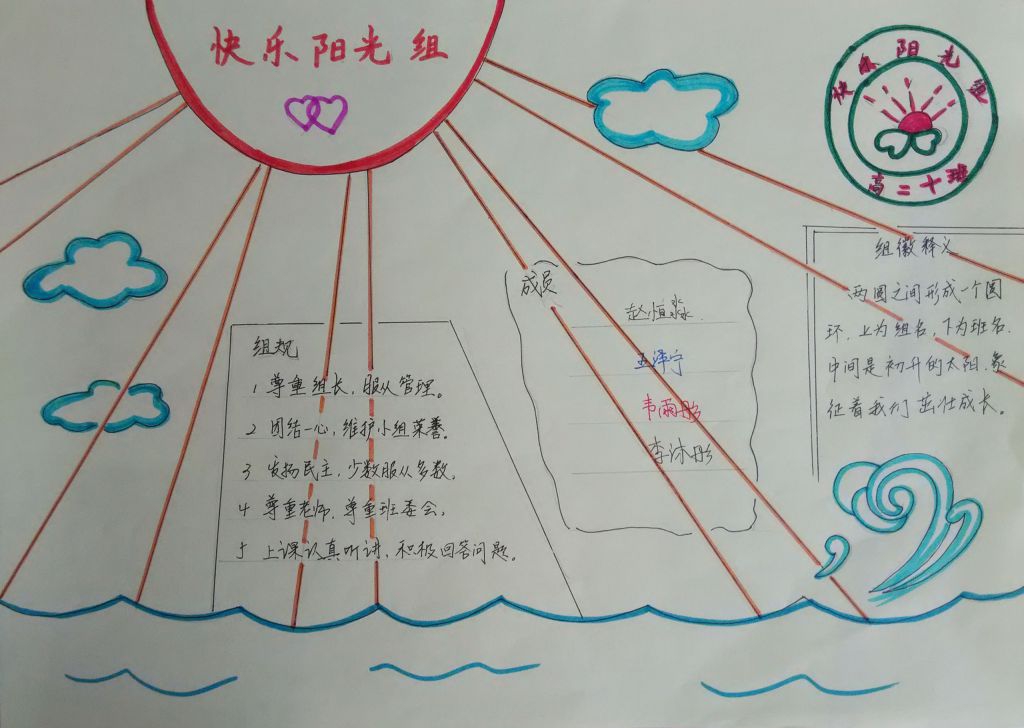 快乐阳光组
快乐阳光组
高二十班
组徽释义
两圆之间形成一个圆
环，上为组名，下为班名，
中间是初升的太阳，象
征着我们茁壮成长。
成员
赵恒淼
王泽宁
韦雨彤
李沐彤
组规
1 尊重组长，服从管理。
2 团结一心，维护小组荣誉。
3 发扬民主，少数服从多数。
4 尊重老师，尊重班委会。
5 上课认真听讲，积极回答问题。